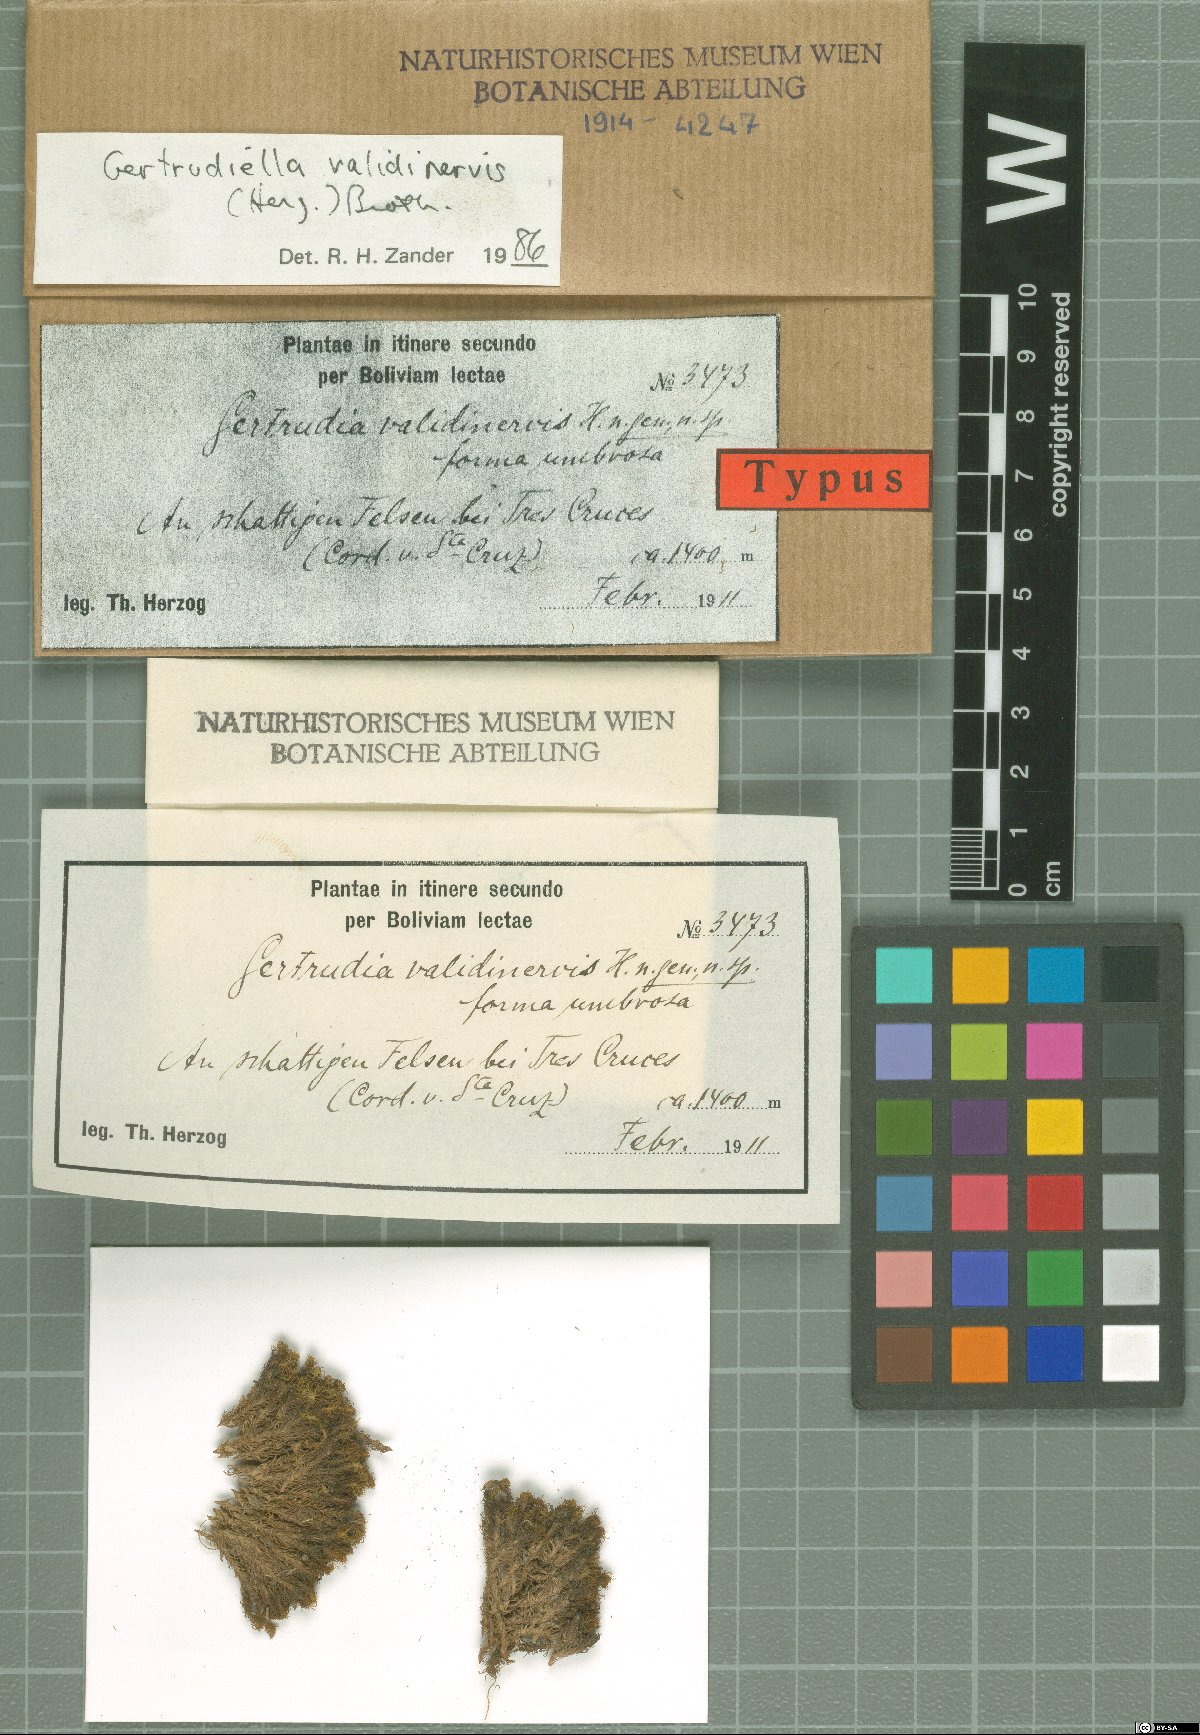 NATURHISTORISCHES MUSEUM WIEN
BOTANISCHE ABTEILUNG
1914 - 4247
Gertrudiella validinervis
(Herz.) Broth.
Det. R. H. Zander 1986
Plantae in itinere secundo
per Boliviam lectae
№ 3473
Gertrudia validinervis H. n. gen., n. sp.
forma umbrosa
Typus
An schattigen Felsen bei Tres Cruces
(Cord. v. Sta Cruz)
ca. 1400 m
leg. Th. Herzog
Febr. 1911
NATURHISTORISCHES MUSEUM WIEN
BOTANISCHE ABTEILUNG
Plantae in itinere secundo
per Boliviam lectae
№ 3473
Gertrudia validinervis H. n. gen., n. sp.
forma umbrosa
An schattigen Felsen bei Tres Cruces
(Cord. v. Sta Cruz)
ca. 1400 m
leg. Th. Herzog
Febr. 1911
W
10
9
8
7
6
5
4
3
2
1
0
cm
copyright reserved
cc BY-SA